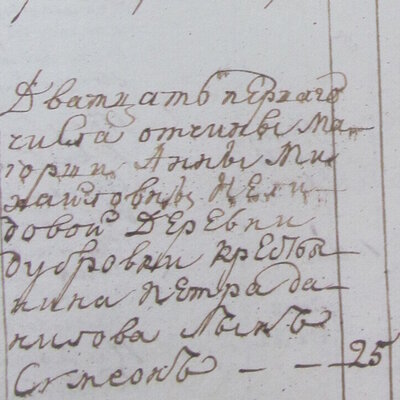 Дватцать перваго
числа отчины Ма
іорши Анны Ми
хаиловны Нели
довой Деревни
дубровки кресть
нина Петра да
нилова сынъ
Симеонъ — — 25